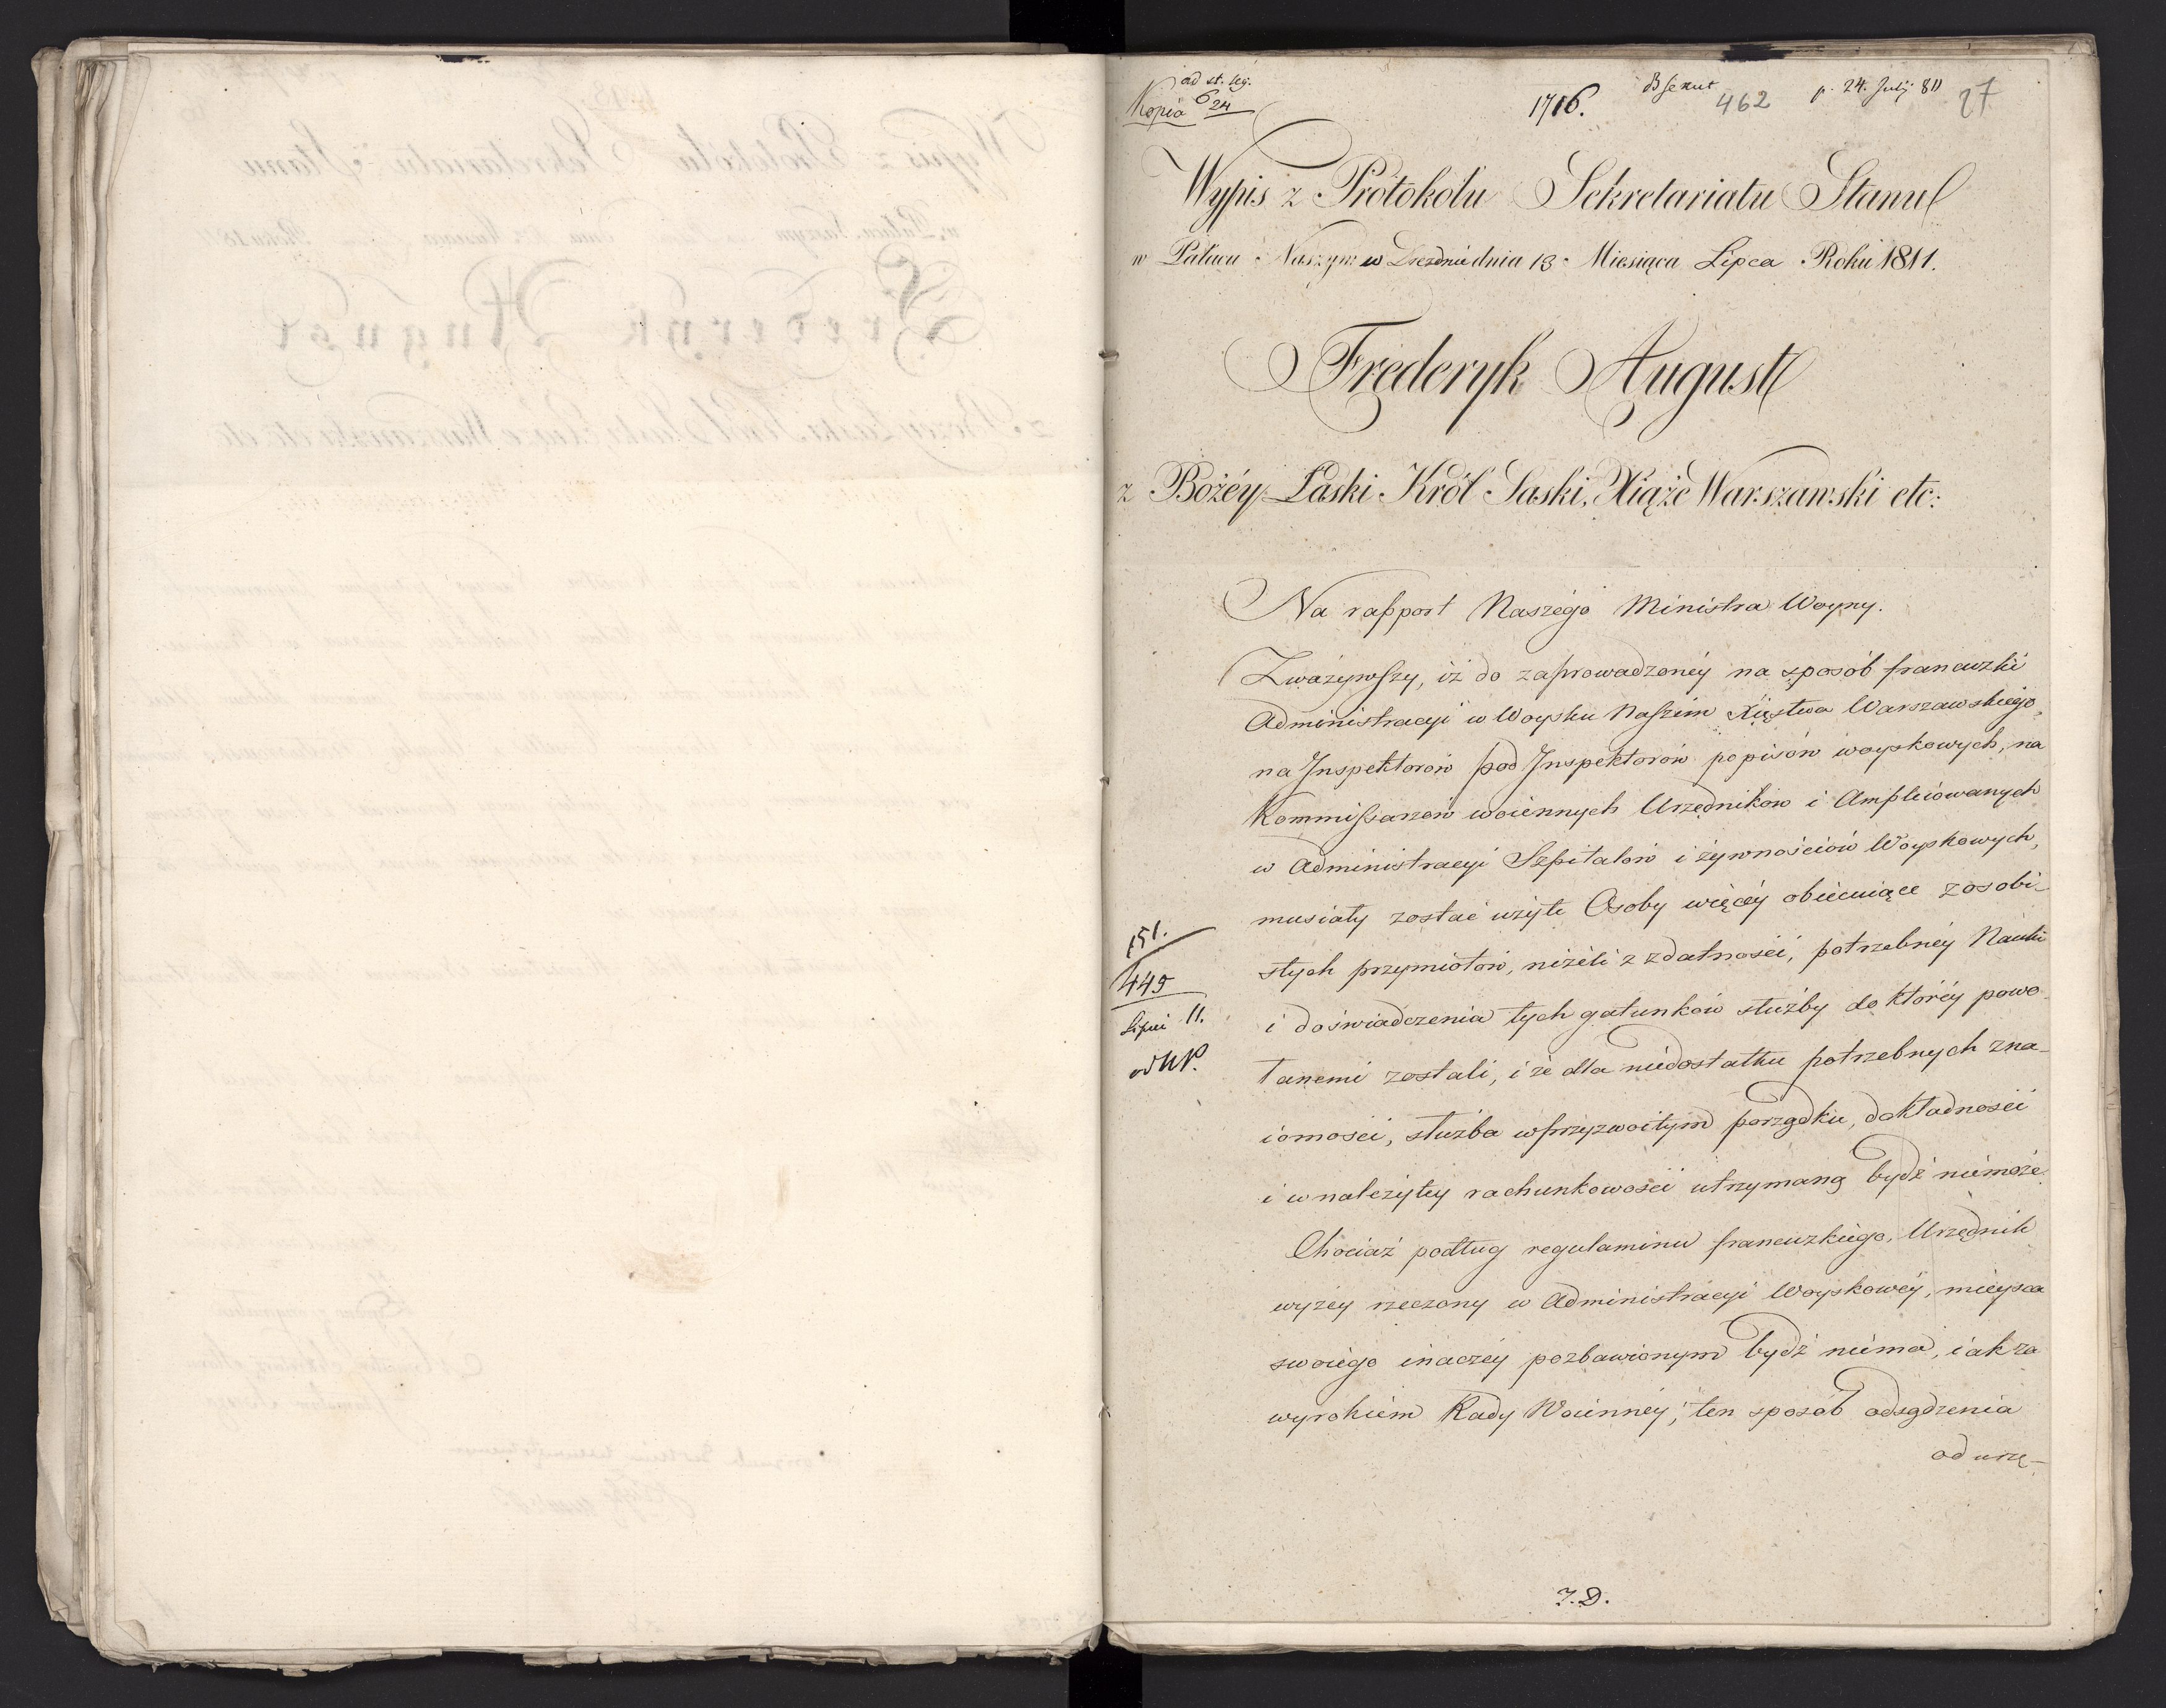 ad st. leg.
Kopia 6 24
1716.
462
p. 24. July 811
27
Wypis z Protokołu Sekretariatu Stanu
w Pałacu Naszym w Dreznie dnia 13 Miesiąca Lipca Roku 1811.
Frederyk August
z Bożéy Łaski Król Saski, Xiąże Warszawski etc:
Na rapport Naszégo Ministra Woyny.
Zważywszy, iż do zaprowadzonéy na sposób francuzki
Administracyi w Woysku Naszém Xięstwa Warszawskiego,
na Inspektorów pod Inspektorów popisów woyskowych, na
Kommissarzow woiennych Urzędników i Ampleiowanych
w Administracyi Szpitalów i żywnościów Woyskowych,
musiały zostać użyte Osoby więcéy obiecuiące z osobi-
stych przymiotów, niżeli z zdatności, potrzebnéy Nauki
i doświadczenia tych gatunków służby do któréy powo-
łanemi zostali, i że dla niedostatku potrzebnych zna-
iomości, służba w przyzwoitym porządku, dokładności
i w należytey rachunkowości utrzymaną bydź niemoże.
Chociaż podług regulaminu francuzkiégo, Urzędnik
wyżéy rzeczony w Administracyi Woyskowéy, mieysca
swoiégo inaczéy pozbawionym bydź niema, iak za
wyrokiem Rady Woiennéy, ten sposób odsądzenia
od urzę-
151.
449
Lipca 11.
J.D.